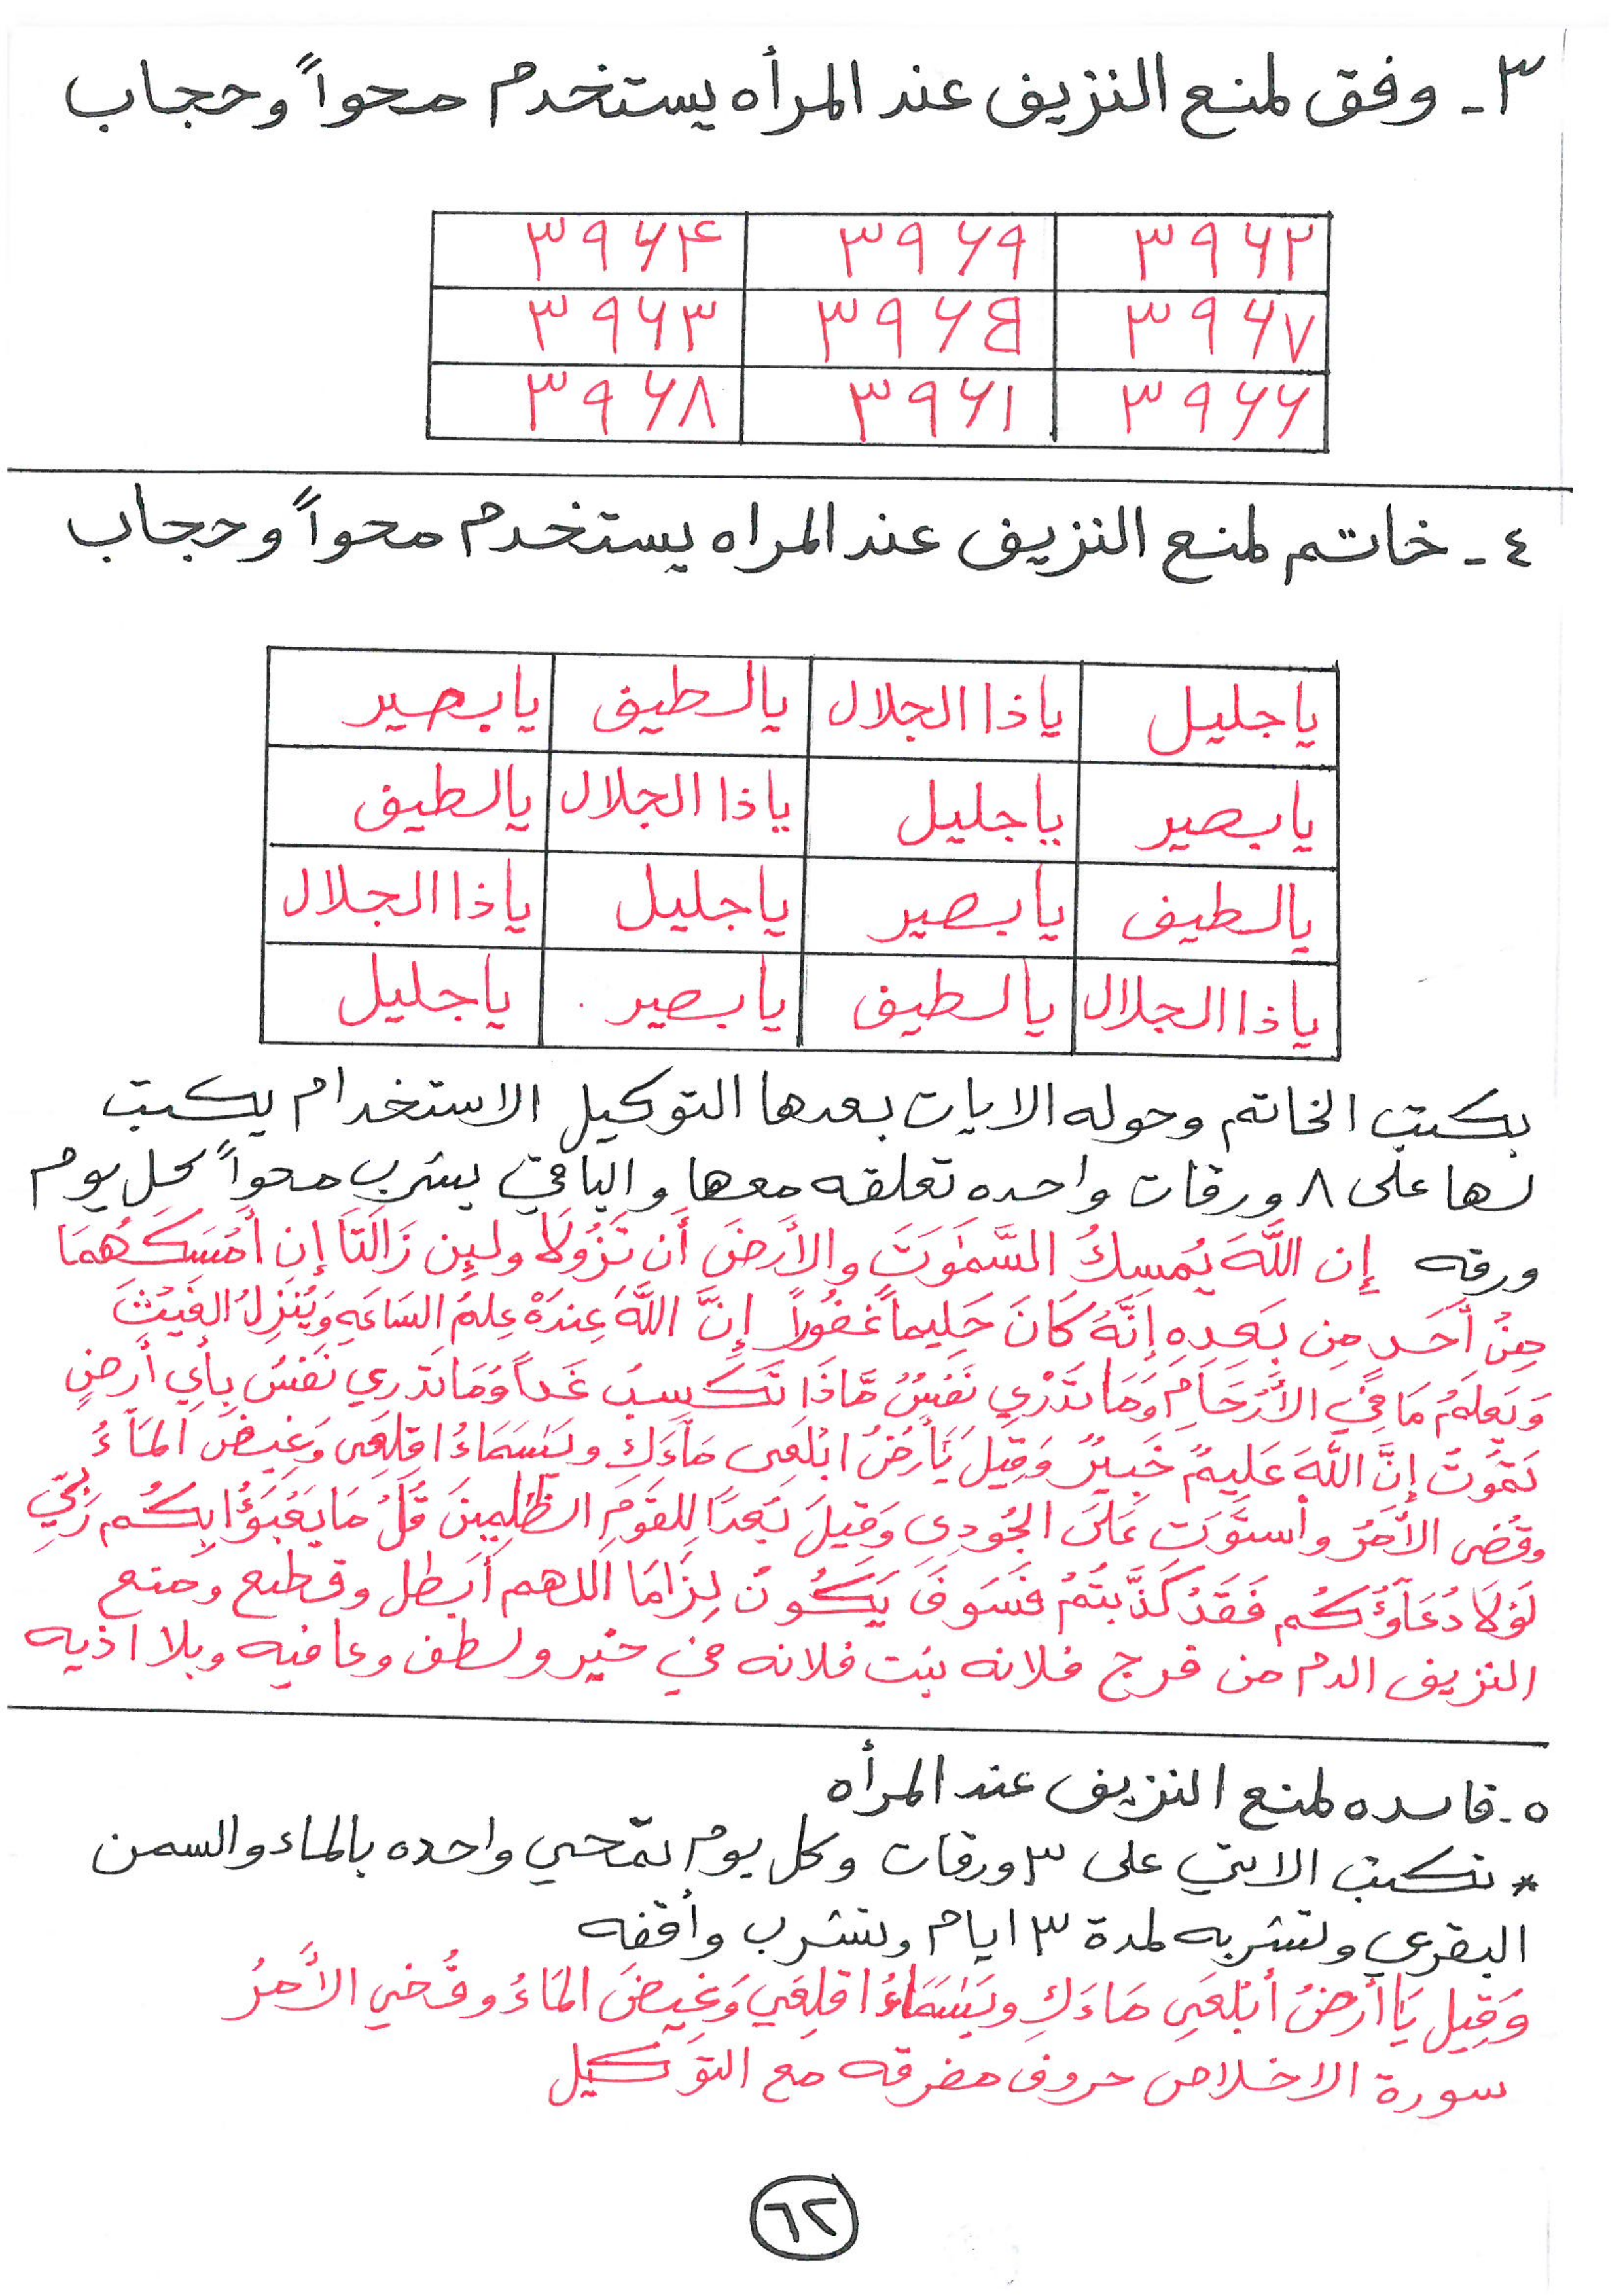 ٣- وفق لمنع النزيف عند المرأه يستخدم محواً وحجاب
٣٩٦٢ ٣٩٦٩ ٣٩٦٤
٣٩٦٧ ٣٩٦٥ ٣٩٦٣
٣٩٦٦ ٣٩٦١ ٣٩٦٨
٤- خاتم لمنع النزيف عند المراه يستخدم محواً وحجاب
ياجليل ياذا الجلال يالطيف يابصير
يابصير ياجليل ياذا الجلال يالطيف
يالطيف يابصير ياجليل ياذا الجلال
ياذا الجلال يالطيف يابصير ياجليل
يكتب الخاتم وحوله الايات بعدها التوكيل الاستخدام يكتب
لها على ٨ ورقات واحده تعلقه معها والباقي يشرب محواً كل يوم
ورقه إن اللَّهَ يُمسِكُ السَّمَٰوَتَ والأَرضَ أَن تَزُولَا ولَئِن زَالَتَا إِن أَمسَكَهُمَا
مِنْ أَحَدٍ مِن بَعدِه إِنَّهُ كَانَ حَلِيماً غَفُوراً إِنَّ اللَّهَ عِندَهُ عِلمُ السَاعَةِ وَيُنَزِلُ الغَيْثَ
وَيَعلَمُ مَا فِي الأَرْحَامِ وَمَا تَدْرِي نَفسٌ مَّاذَا تَكسِبُ غَداً وَمَا تَدرِي نَفسُ بِأَيِ أَرضٍ
تَمُوتُ إِنَّ اللَّهَ عَلِيمٌ خَبِيرٌ وَقِيلَ يَٰأَرضُ ابْلَعِى مَآءَكِ ويَٰسَمَاءُ اقلِعِى وَغِيضَ المَآءُ
وقُضِى الأَمرُ وأستَوَت عَلَى الجُودِى وَقِيلَ بُعدَا لِلقَومِ الظَّٰلِمِينَ قُلْ مَا يَعبَؤُا بِكُم رَبِّي
لَولَا دُعَآؤُكُم فَقَدْ كَذَّبتُمْ فَسَوفَ يَكُونُ لِزَامَا اللهم أبطل وقطع ومنع
النزيف الدم من فرج فلانه بنت فلانه في خير ولطف وعافيه وبلا اذيه
٥- فائده لمنع النزيف عند المرأه
* تكتب الاتي على ٣ ورقات وكل يوم تمحي واحده بالماء والسمن
البقري وتشربه لمدة ٣ ايام وتشرب وأقفه
وَقِيل يَا أرضُ أبْلَعِي مَاءَكِ ويَٰسَمَاءُ اقلِعِي وَغِيضَ المَاءُ وقُضي الأَمرُ
سورة الاخلاص حروف مفرقه مع التوكيل
٦٢